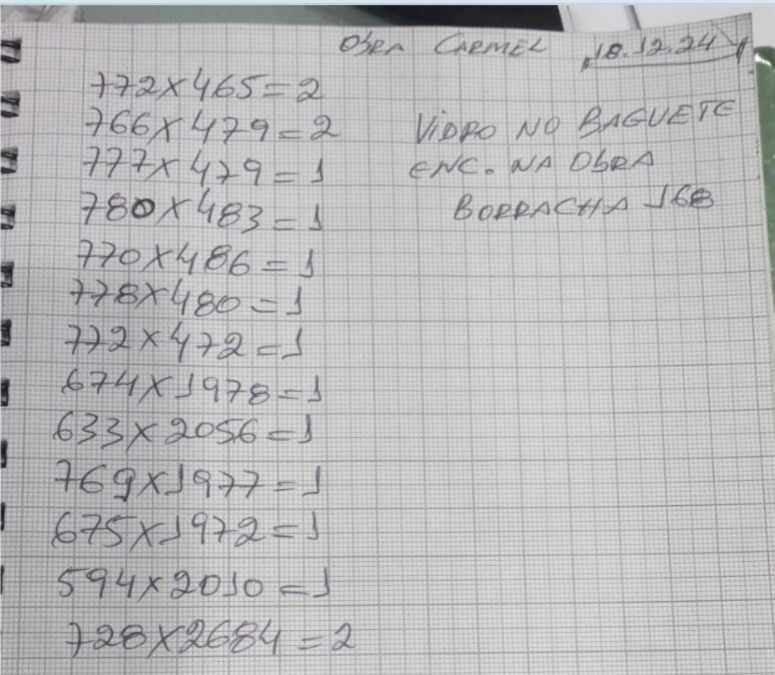 OBRA CARMEL 18.12.24
772X465=2
766X479=2
777X479=1
780X483=1
770X486=1
778X480=1
772X472=1
674X1978=1
633X2056=1
769X1977=1
675X1972=1
594X2010=1
728X2684=2
VIDRO NO BAGUETE
ENC. NA OBRA
BORRACHA 168